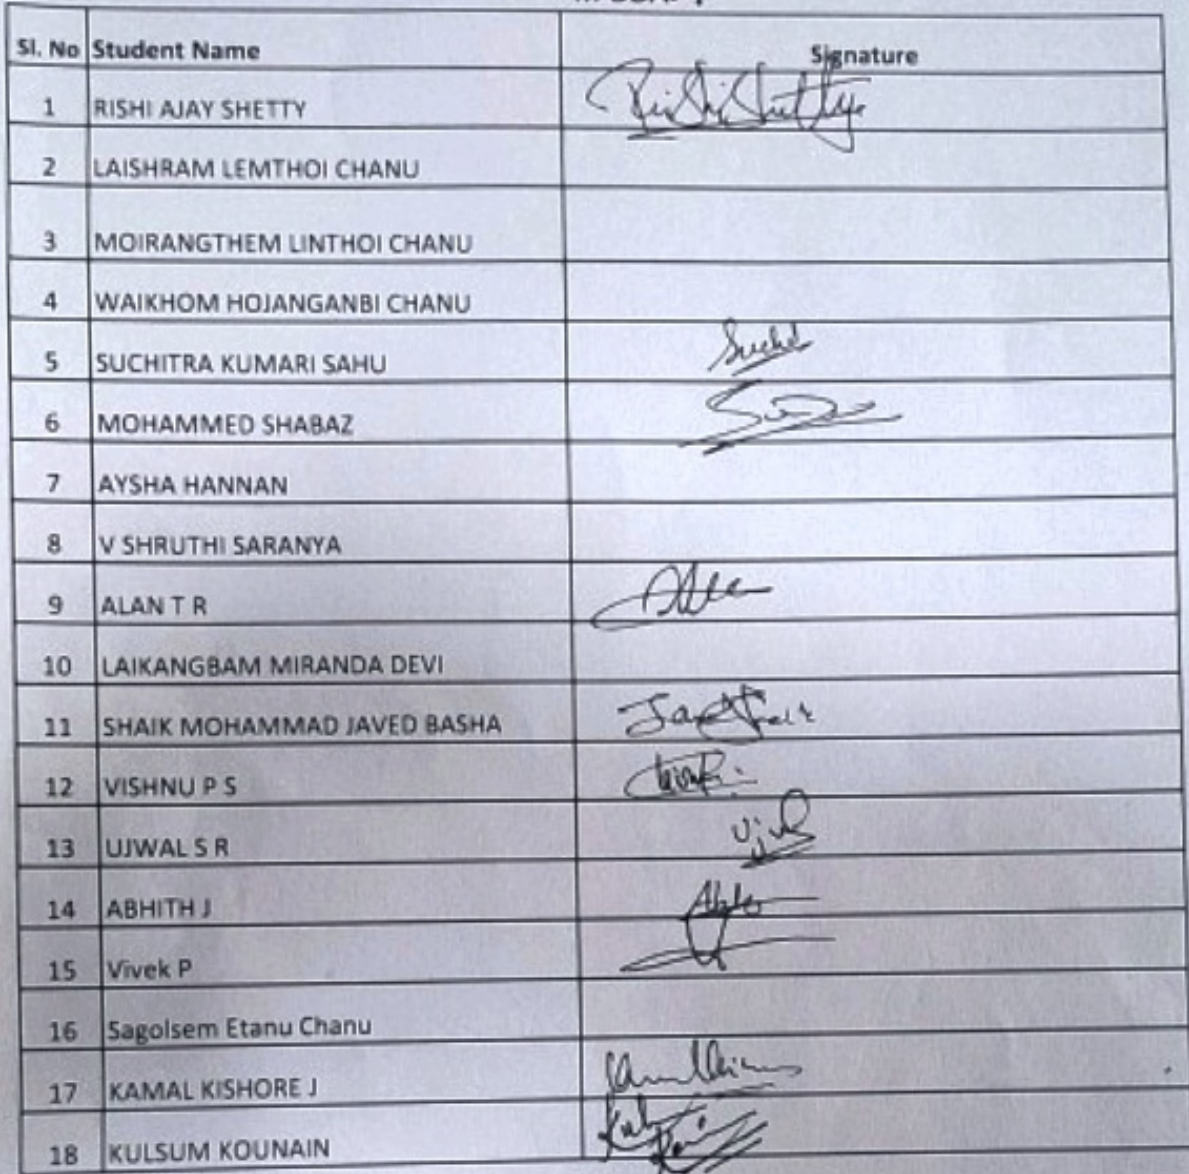 Sl. No Student Name Signature
1 RISHI AJAY SHETTY Rishi Shetty
2 LAISHRAM LEMTHOI CHANU
3 MOIRANGTHEM LINTHOI CHANU
4 WAIKHOM HOJANGANBI CHANU
5 SUCHITRA KUMARI SAHU
6 MOHAMMED SHABAZ
7 AYSHA HANNAN
8 V SHRUTHI SARANYA
9 ALAN T R
10 LAIKANGBAM MIRANDA DEVI
11 SHAIK MOHAMMAD JAVED BASHA
12 VISHNU P S
13 UJWAL S R
14 ABHITH J
15 Vivek P
16 Sagolsem Etanu Chanu
17 KAMAL KISHORE J
18 KULSUM KOUNAIN